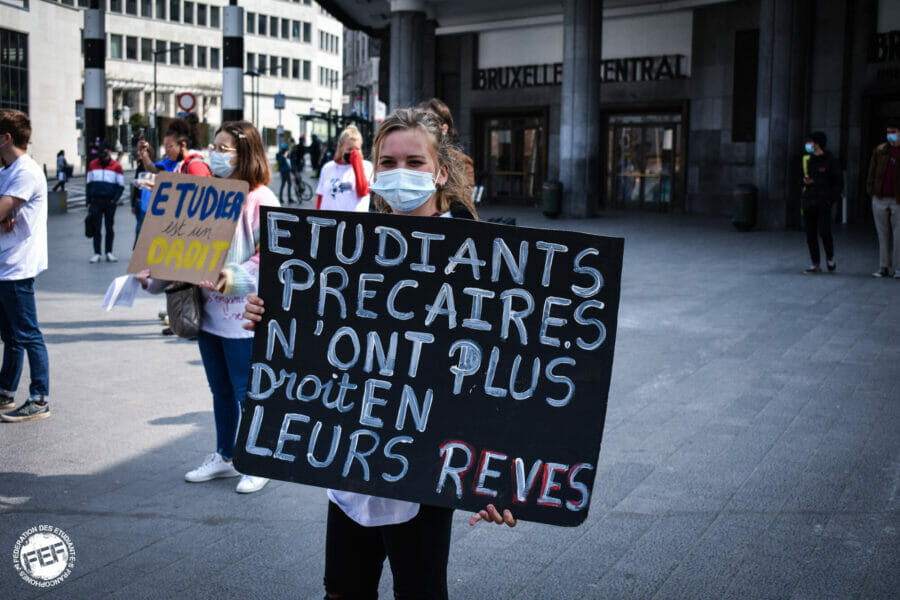 BRUXELLES CENTRAL
ETUDIER
est un
DROIT
ETUDIANTS
PRECAIRE.S
N'ONT PLUS
Droit EN
LEURS REVES
FEDERATION DES ETUDIANT·E·S FRANCOPHONES
FEF